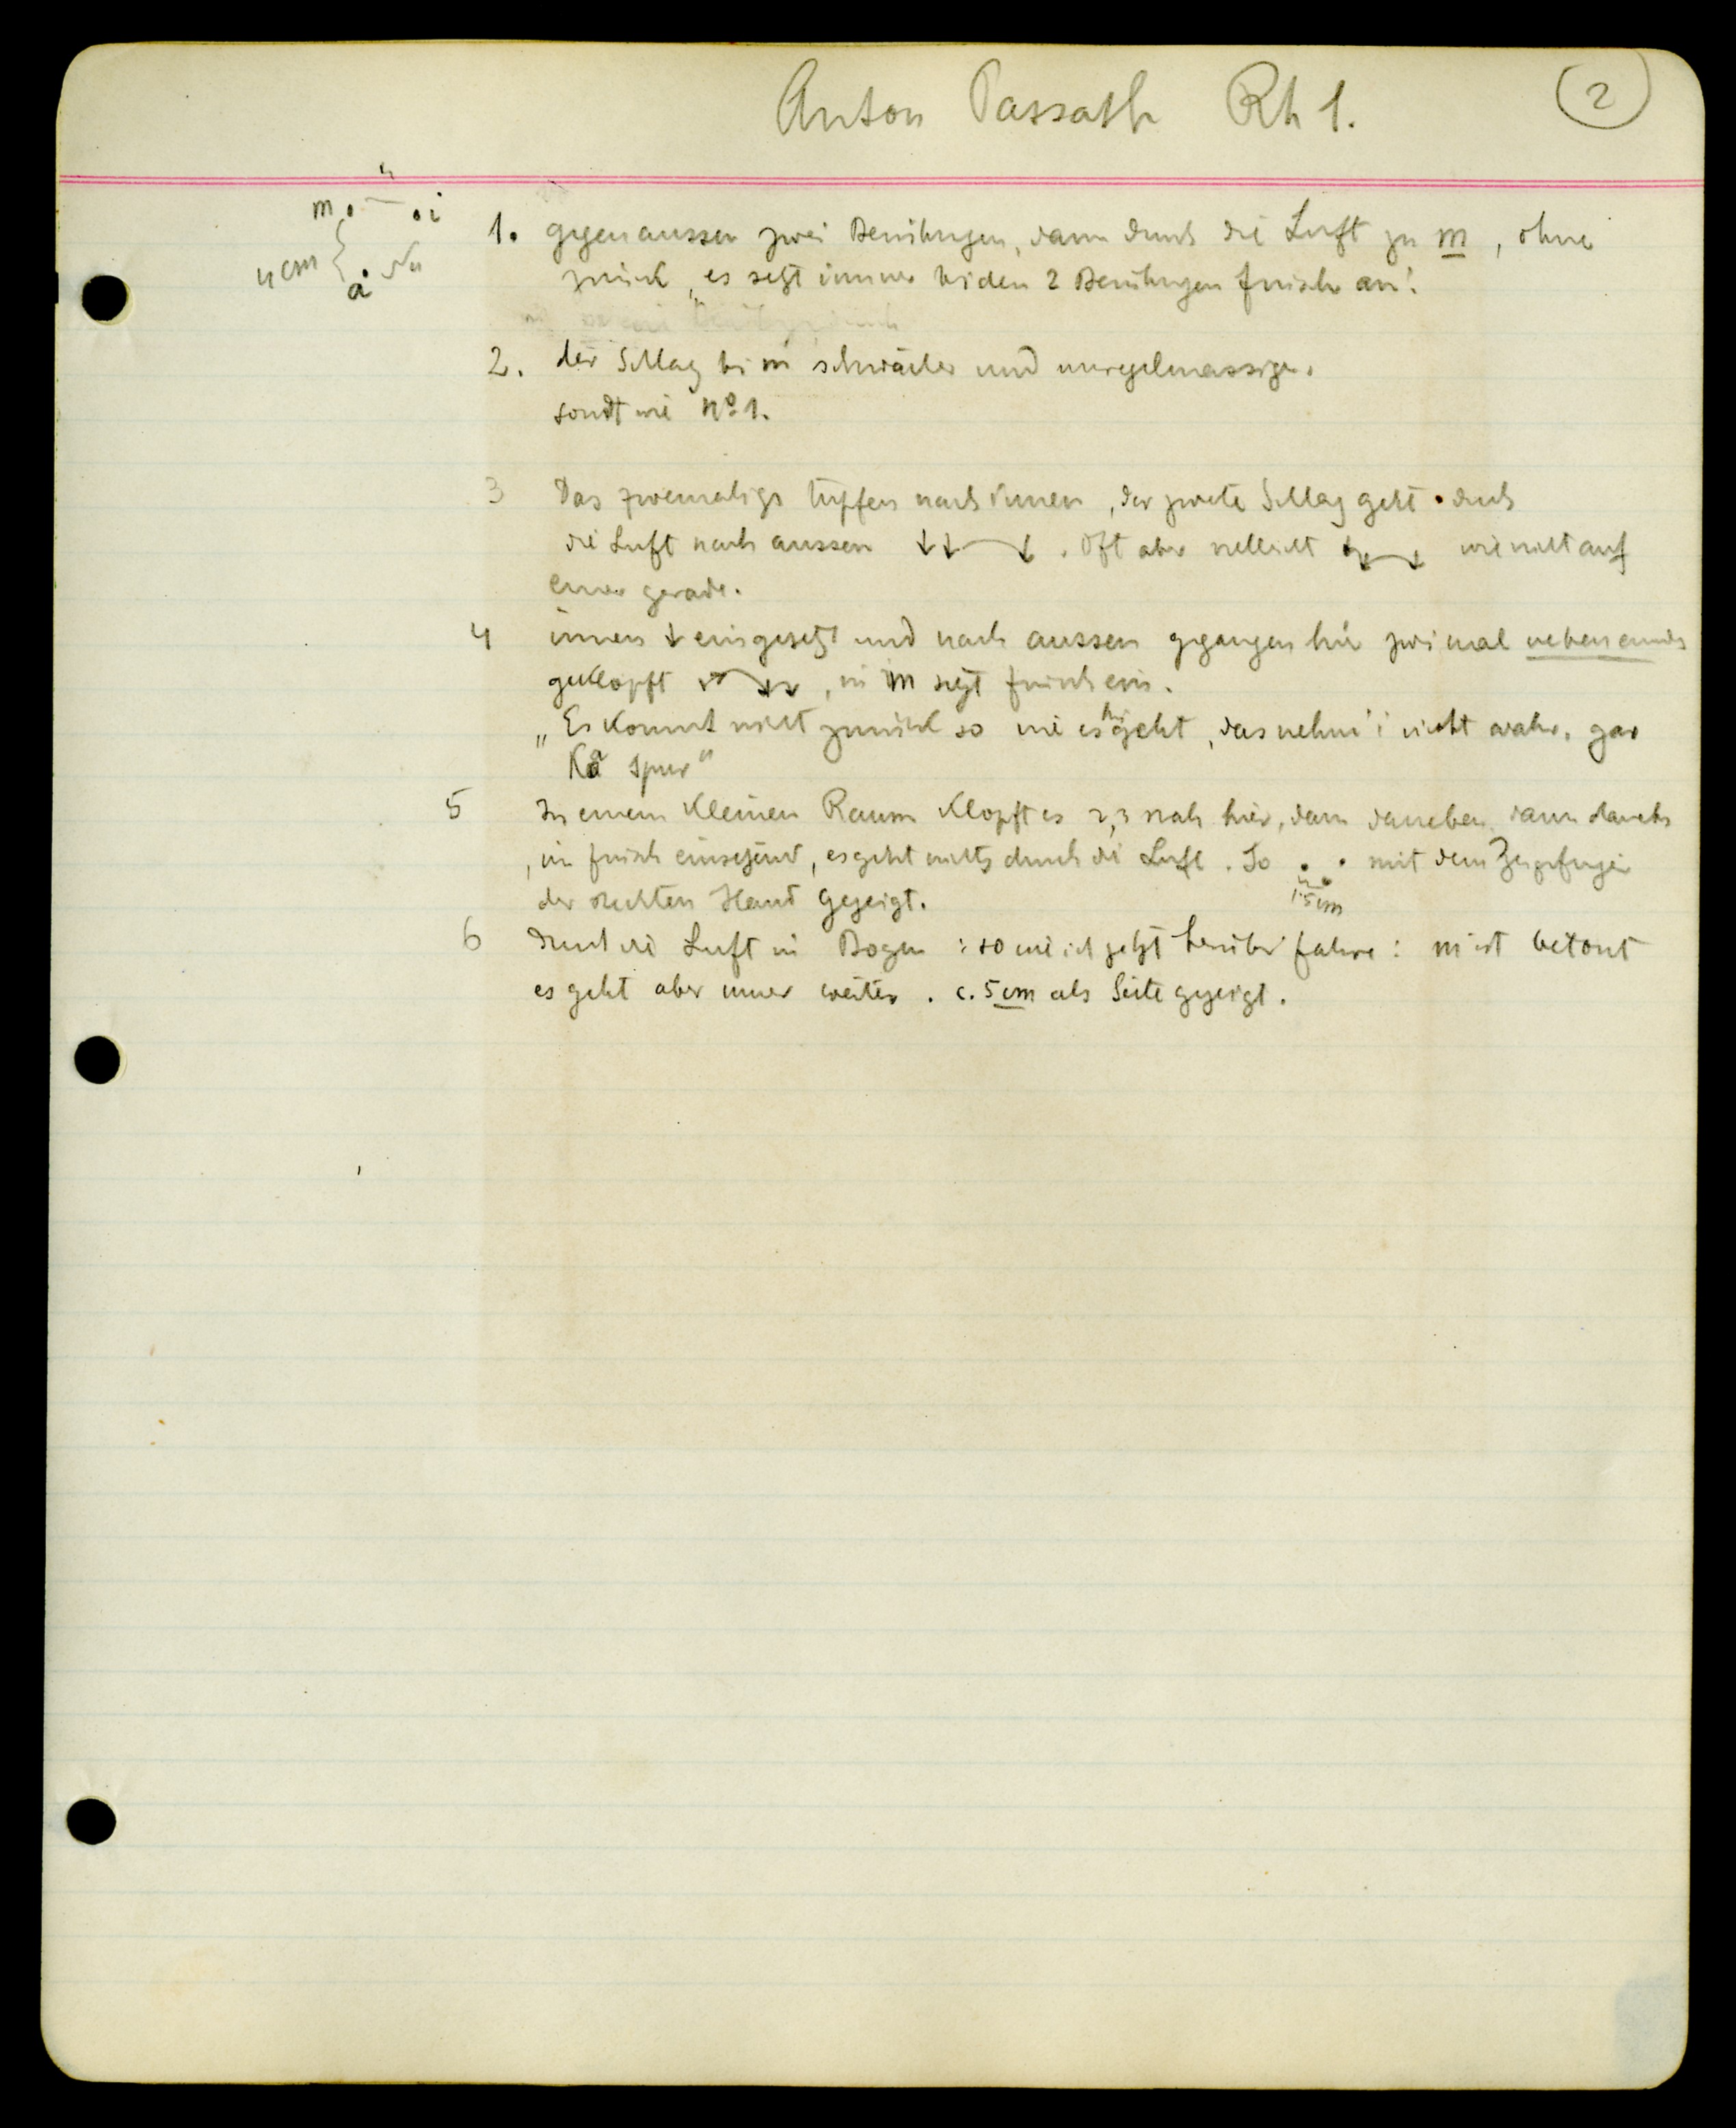 Anton Passath Rh 1.
2
4
m . . i
4 cm
a
1. gegen aussen zwei Berührungen, dann durch die Luft zu m, ohne
zurück „es setzt immer bei den 2 Berührungen frisch an!
2. der Schlag bei m schwächer und unregelmässiger.
sonst wie No 1.
3 Das zweimalige tupfen nach innen, der zweite Schlag geht durch
die Luft nach aussen ↓↓ ↓. Oft aber vielleicht ↓↓ ↓ wie nicht auf
einer gerade.
4 innen ↓ eingesetzt und nach aussen gegangen hier zwei mal nebeneinander
geklopft, in m setzt frisch ein.
„Es kommt nicht zurück so wie es hingeht, das nehm' i nicht wahr, gar
Ka spur"
5 In einem kleinen Raum klopft es 2, 3 mal hier, dann daneben, dann
, frisch einsetzend, es geht nichts durch die Luft. So . . mit dem Zeigefinger
1.5 cm
der rechten Hand gezeigt.
6 durch die Luft in Bogen : so wie ich jetzt herüber fahre : m ist betont
es geht aber immer weiter. c. 5 cm als Seite gezeigt.